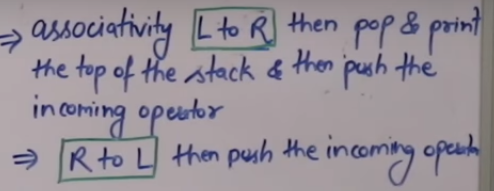 ⇒ associativity L to R then pop & print
the top of the stack & then push the
incoming operator
⇒ R to L then push the incoming operato